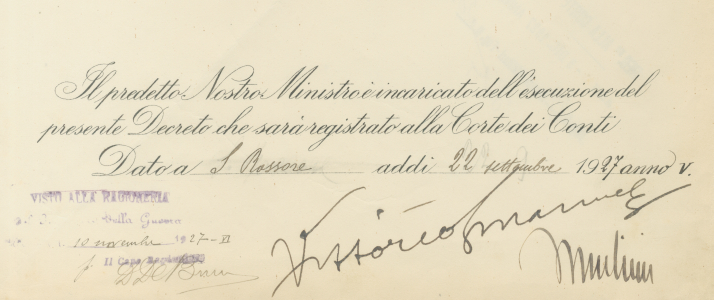 Il predetto Nostro Ministro è incaricato dell'esecuzione del
presente Decreto che sarà registrato alla Corte dei Conti
Dato a S. Rossore addì 22 settembre 1927 anno V.
VISTO ALLA RAGIONERIA
della Guerra
10 novembre 1927-VI
Il Capo
Vittorio Emanuele
Mussolini